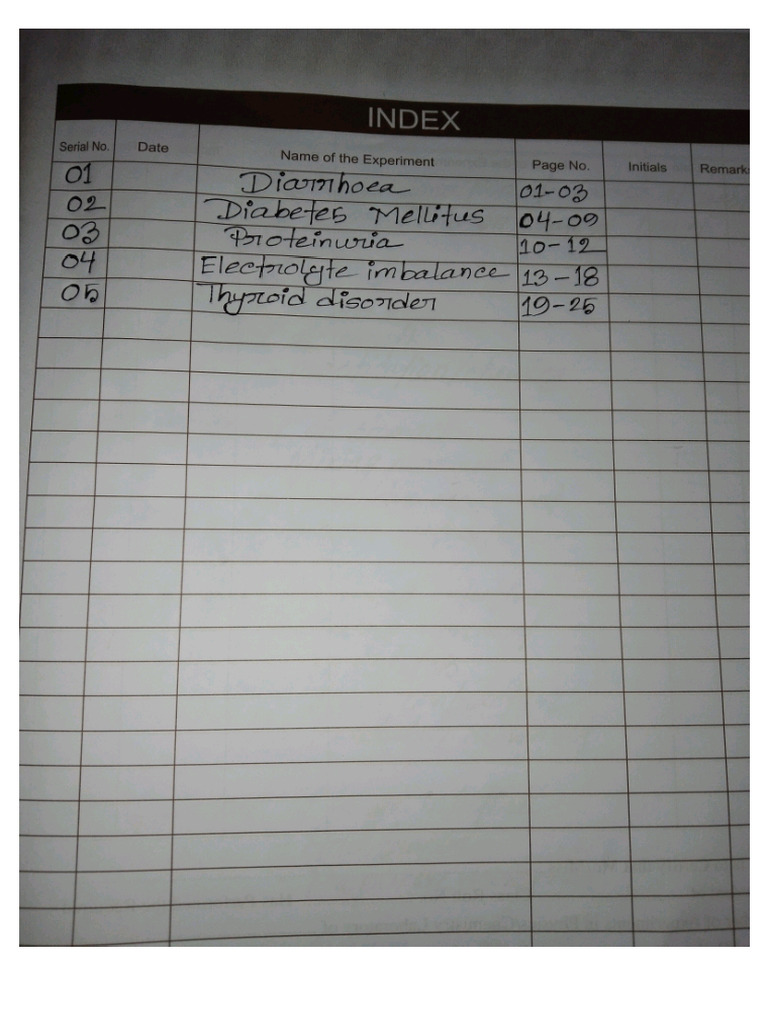 INDEX
Serial No. Date Name of the Experiment Page No. Initials Remark
01 Diarrhoea 01-03
02 Diabetes Mellitus 04-09
03 Proteinuria 10-12
04 Electrolyte imbalance 13-18
05 Thyroid disorder 19-25